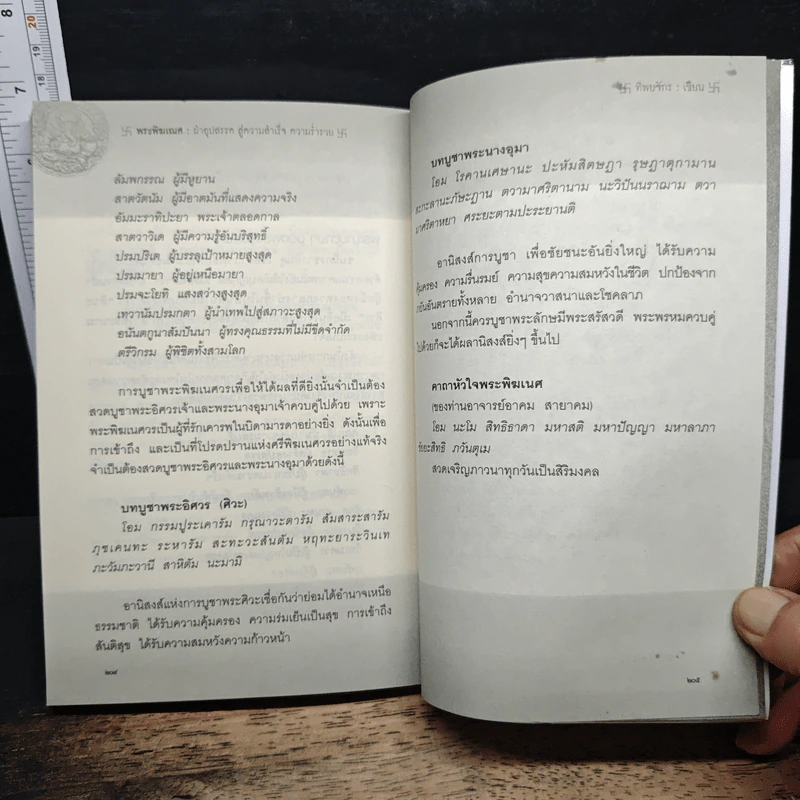 卐 พระพิฆเณศ : ฝ่าอุปสรรค สู่ความสำเร็จ ความร่ำรวย 卐
ลัมพกรรณ ผู้มีหูยาน
สาตวัดนัม ผู้มีอาตมันที่แสดงความจริง
อัมมะราทิปะยา พระเจ้าตลอดกาล
สาตวาวิเด ผู้มีความรู้อันบริสุทธิ์
ปรมปริเต ผู้บรรลุเป้าหมายสูงสุด
ปรมมายา ผู้อยู่เหนือมายา
ปรมจะโยทิ แสงสว่างสูงสุด
เทวานัมปรมกตา ผู้นำเทพไปสู่สภาวะสูงสุด
อนันตกูนาสัมปันนา ผู้ทรงคุณธรรมที่ไม่มีขีดจำกัด
ตรีวิกรม ผู้พิชิตทั้งสามโลก
การบูชาพระพิฆเนศวรเพื่อให้ได้ผลที่ดียิ่งนั้นจำเป็นต้อง
สวดบูชาพระอิศวรเจ้าและพระนางอุมาเจ้าควบคู่ไปด้วย เพราะ
พระพิฆเนศวรเป็นผู้ที่รักเคารพในบิดามารดาอย่างยิ่ง ดังนั้นเพื่อ
การเข้าถึง และเป็นที่โปรดปรานแห่งศรีพิฆเนศวรอย่างแท้จริง
จำเป็นต้องสวดบูชาพระอิศวรและพระนางอุมาด้วยดังนี้
บทบูชาพระอิศวร (ศิวะ)
โอม กรรมปูระเคารัม กรุณาวะตารัม สัมสาระสารัม
ภุชเคนทะ ระหารัม สะทะวะสันตัม หฤทะยาระวินเท
ภะวัมภะวานี สาหิตัม นะมามิ
อานิสงส์แห่งการบูชาพระศิวะเชื่อกันว่าย่อมได้อำนาจเหนือ
ธรรมชาติ ได้รับความคุ้มครอง ความร่มเย็นเป็นสุข การเข้าถึง
สันติสุข ได้รับความสมหวังความก้าวหน้า
๒๐๔
卐 ทิพยจักร : เขียน 卐
บทบูชาพระนางอุมา
โอม โรคานเศษานะ ปะหัมสิตษฎา รุษฎาตุกามาน
สะกะลานะภัษะฎาน ตวามาศริตานาม นะวิปันนราฌาม ตวา
มาศริตาหยา ศระยะตามประระยานติ
อานิสงส์การบูชา เพื่อชัยชนะอันยิ่งใหญ่ ได้รับความ
คุ้มครอง ความรื่นรมย์ ความสุขความสมหวังในชีวิต ปกป้องจาก
ภยันอันตรายทั้งหลาย อำนาจวาสนาและโชคลาภ
นอกจากนี้ควรบูชาพระลักษมีพระสรัสวดี พระพรหมควบคู่
ไปด้วยก็จะได้ผลานิสงส์ยิ่งๆ ขึ้นไป
คาถาหัวใจพระพิฆเนศ
(ของท่านอาจารย์อาคม สายาคม)
โอม นะโม สิทธิธาดา มหาสติ มหาปัญญา มหาลาภา
ชัยะสิทธิ ภวันตุเม
สวดเจริญภาวนาทุกวันเป็นสิริมงคล
๒๐๕
8
7
20
19
18
17